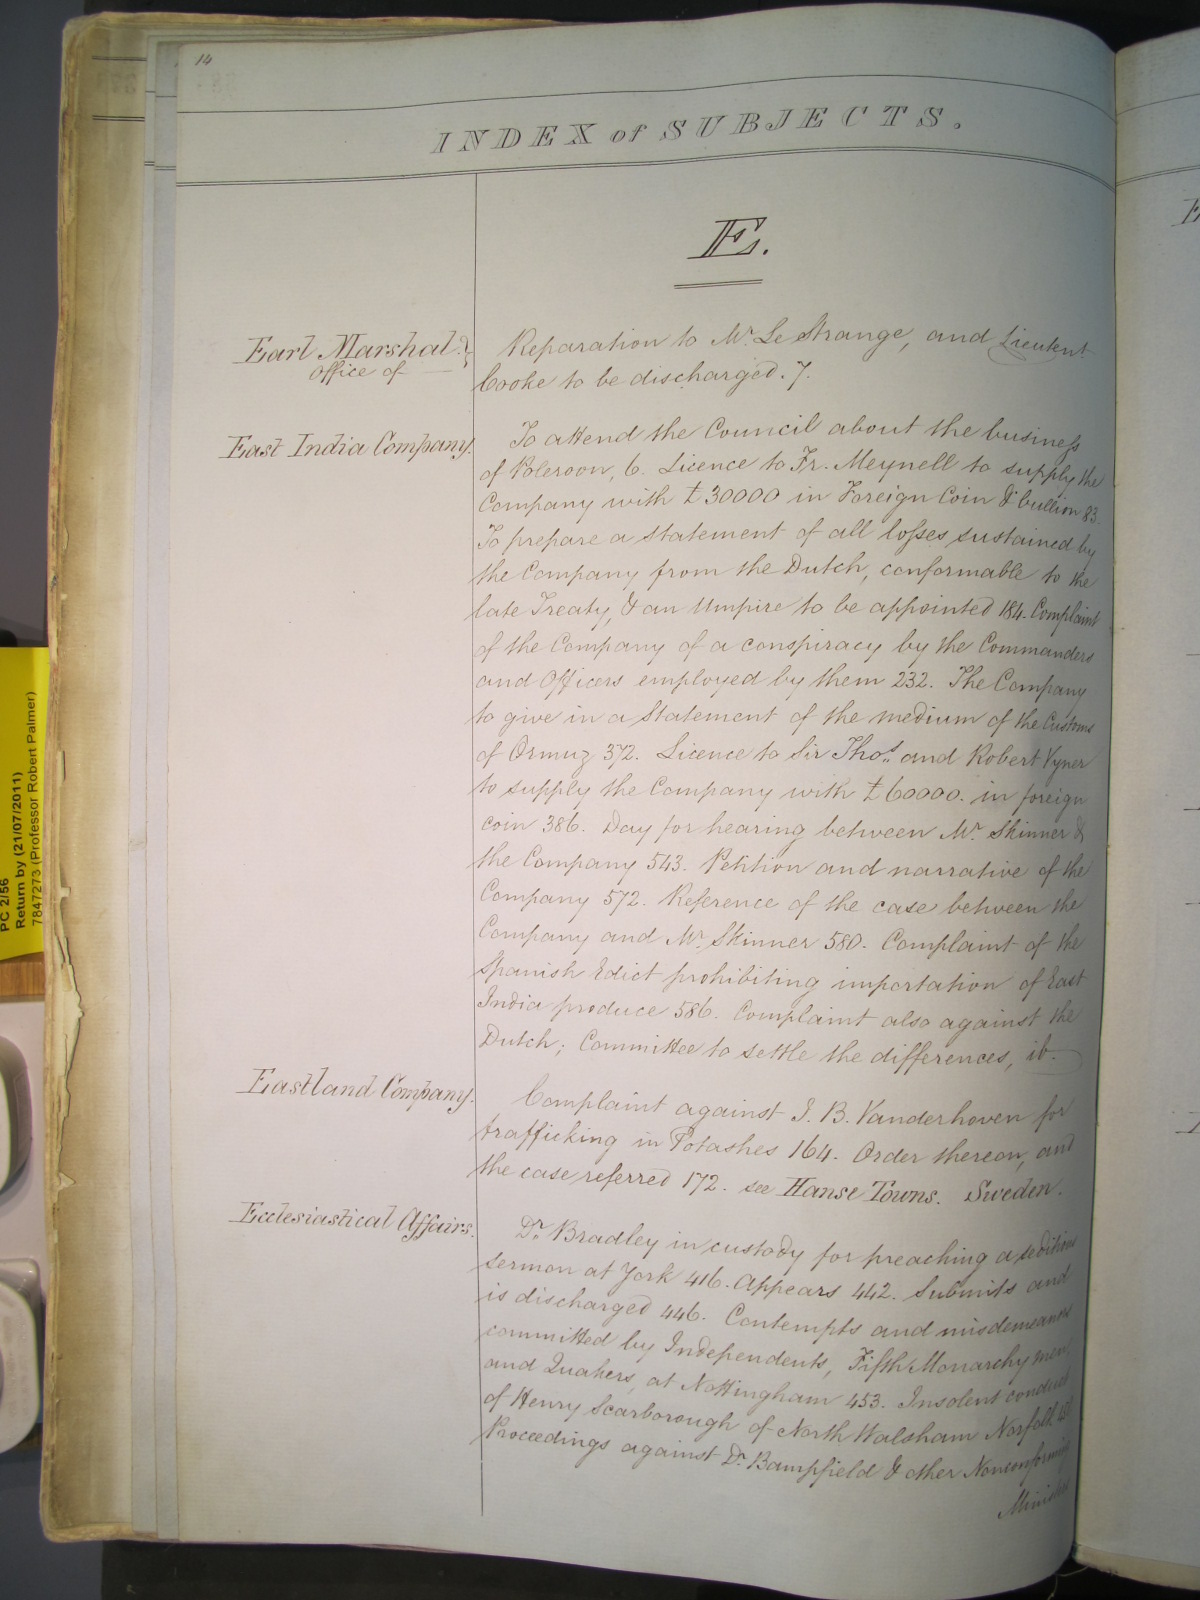 14
INDEX of SUBJECTS.
E.
Earl Marshal.
Office of
Reparation to Mr. Le Strange, and Lieutent
Cooke to be discharged. 7.
East India Company.
To attend the Council about the business
of Poleroon, 6. Licence to Fr. Meynell to supply the
Company with £30000 in Foreign Coin & bullion 83.
To prepare a statement of all losses sustained by
the Company from the Dutch, conformable to the
late Treaty, & an Umpire to be appointed 184. Complaint
of the Company of a conspiracy by the Commanders
and Officers employed by them 232. The Company
to give in a Statement of the medium of the Customs
of Ormuz 372. Licence to Sir Thos. and Robert Vyner
to supply the Company with £60000. in foreign
coin 386. Day for hearing between Mr. Skinner &
the Company 543. Petition and narrative of the
Company 572. Reference of the case between the
Company and Mr. Skinner 580. Complaint of the
Spanish Edict prohibiting importation of East
India produce 586. Complaint also against the
Dutch; Committee to settle the differences, ib.
Eastland Company.
Complaint against J. B. Vanderhoven for
trafficking in Potashes 164. Order thereon, and
the case referred 172. see Hanse Towns. Sweden.
Ecclesiastical Affairs.
Dr. Bradley in custody for preaching a seditious
sermon at York 416. Appears 442. Submits and
is discharged 446. Contempts and misdemeanors
committed by Independents, Fifth Monarchy men,
and Quakers, at Nottingham 453. Insolent conduct
of Henry Scarborough of North Walsham Norfolk
Proceedings against Dr. Bampfield & other Nonconformist
Ministers
PC 2/56
Return by (21/07/2011)
7847273 (Professor Robert Palmer)
E